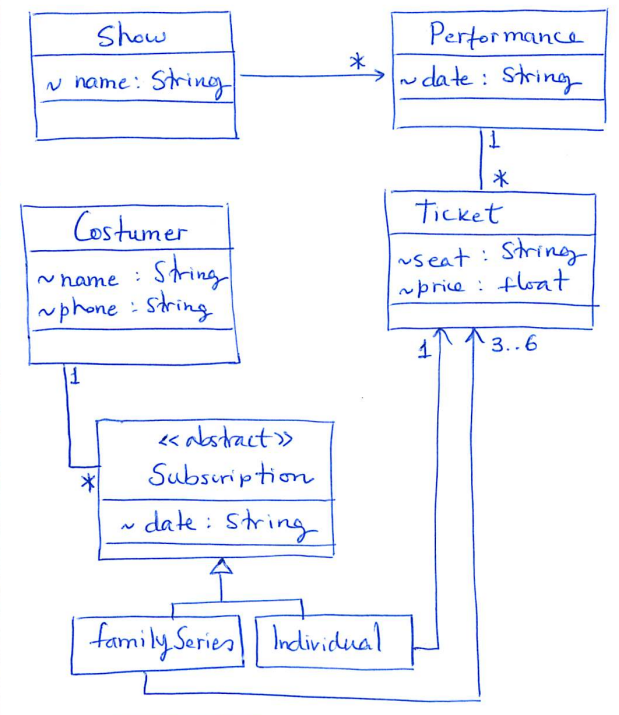 Show
~ name: String
*
Performance
~ date : String
1
*
Ticket
~seat : String
~price : float
1
3..6
Costumer
~name : String
~phone : String
1
*
<<abstract>>
Subscription
~ date : String
familySeries
Individual